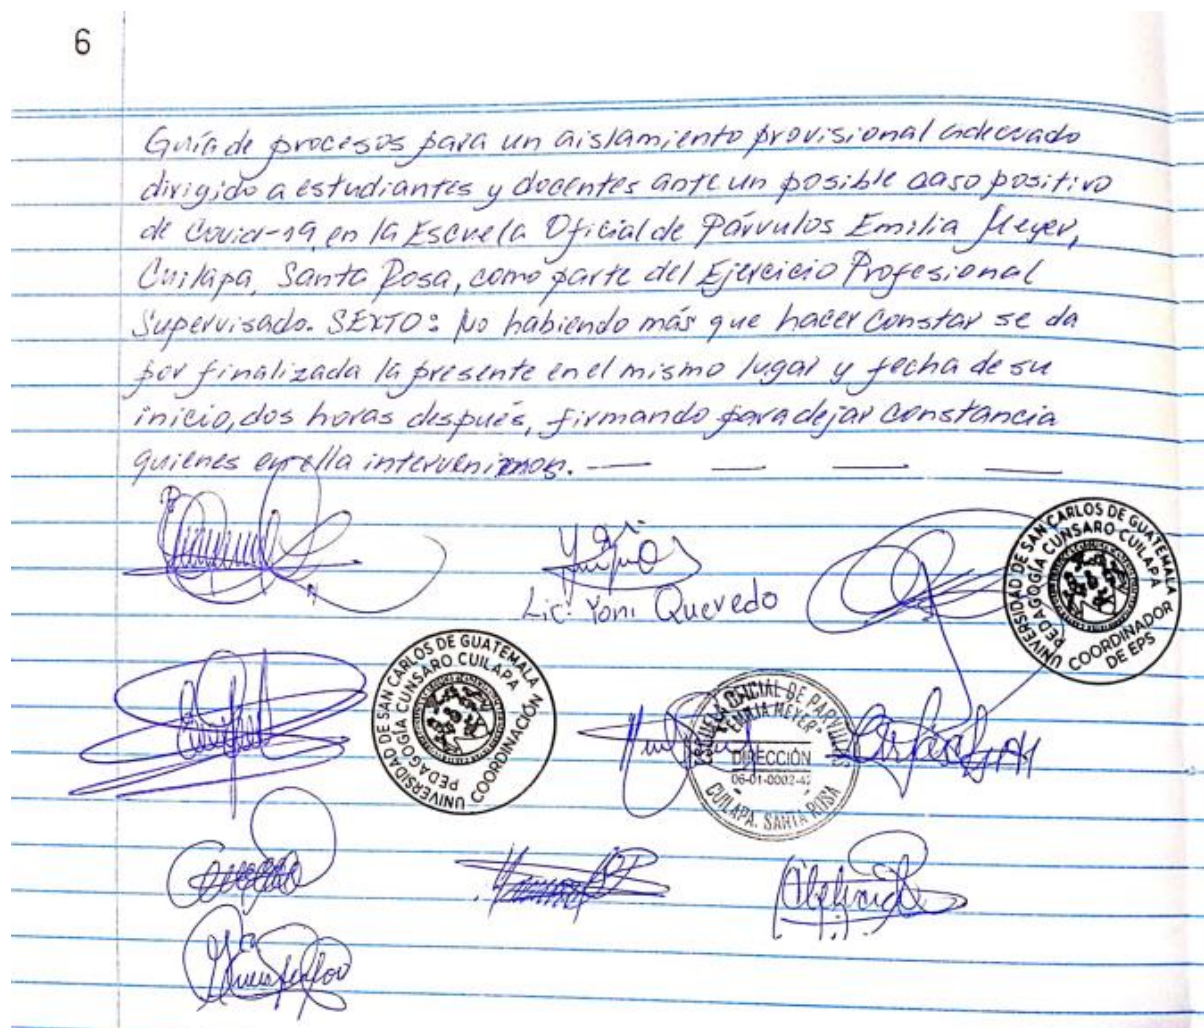 6
Guía de procesos para un aislamiento provisional adecuado
dirigido a estudiantes y docentes ante un posible caso positivo
de Covid-19, en la Escuela Oficial de Párvulos Emilia Meyer,
Cuilapa, Santa Rosa, como parte del Ejercicio Profesional
Supervisado. SEXTO: No habiendo más que hacer constar se da
por finalizada la presente en el mismo lugar y fecha de su
inicio, dos horas después, firmando para dejar constancia
quienes en ella intervenimos.
Lic. Yoni Quevedo
UNIVERSIDAD DE SAN CARLOS DE GUATEMALA
PEDAGOGÍA CUNSARO CUILAPA
COORDINADOR
DE EPS
UNIVERSIDAD DE SAN CARLOS DE GUATEMALA
PEDAGOGÍA CUNSARO CUILAPA
COORDINACIÓN
ESCUELA OFICIAL DE PARVULOS
"EMILIA MEYER"
DIRECCIÓN
06-01-0002-42
CUILAPA, SANTA ROSA